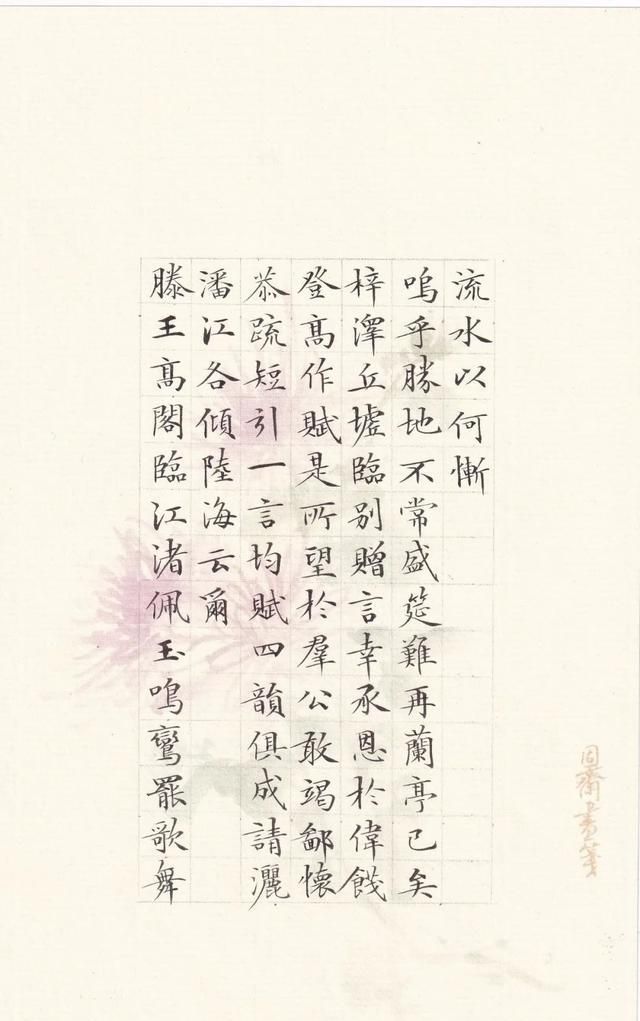 流水以何慚
嗚乎勝地不常盛筵難再蘭亭已矣
梓澤丘墟臨別贈言幸承恩於偉餞
登髙作賦是所望於羣公敢竭鄙懷
恭疏短引一言均賦四韻俱成請灑
潘江各傾陸海云爾
滕王髙閣臨江渚佩玉鳴鸞罷歌舞
同齋書箋